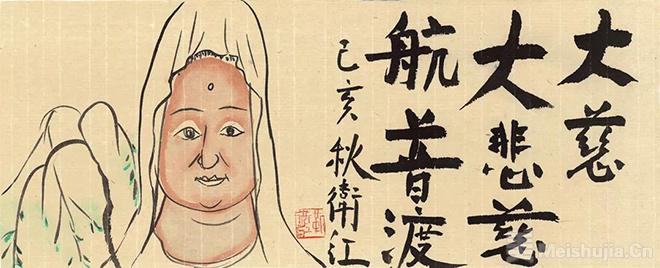 大慈
大悲慈
航普渡
己亥秋衛江
Meishujia.Cn